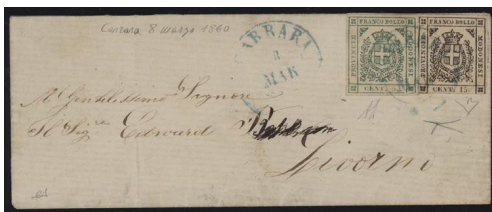 Carrara 8 marzo 1860
CARRARA
8
MAR
FRANCO BOLLO
PROVINCIE
MODONESI
CENT.
FRANCO BOLLO
PROVINCIE
MODONESI
CENT. 15
Al Gentilissimo Signore
Il Sig.re Edward
Livorno